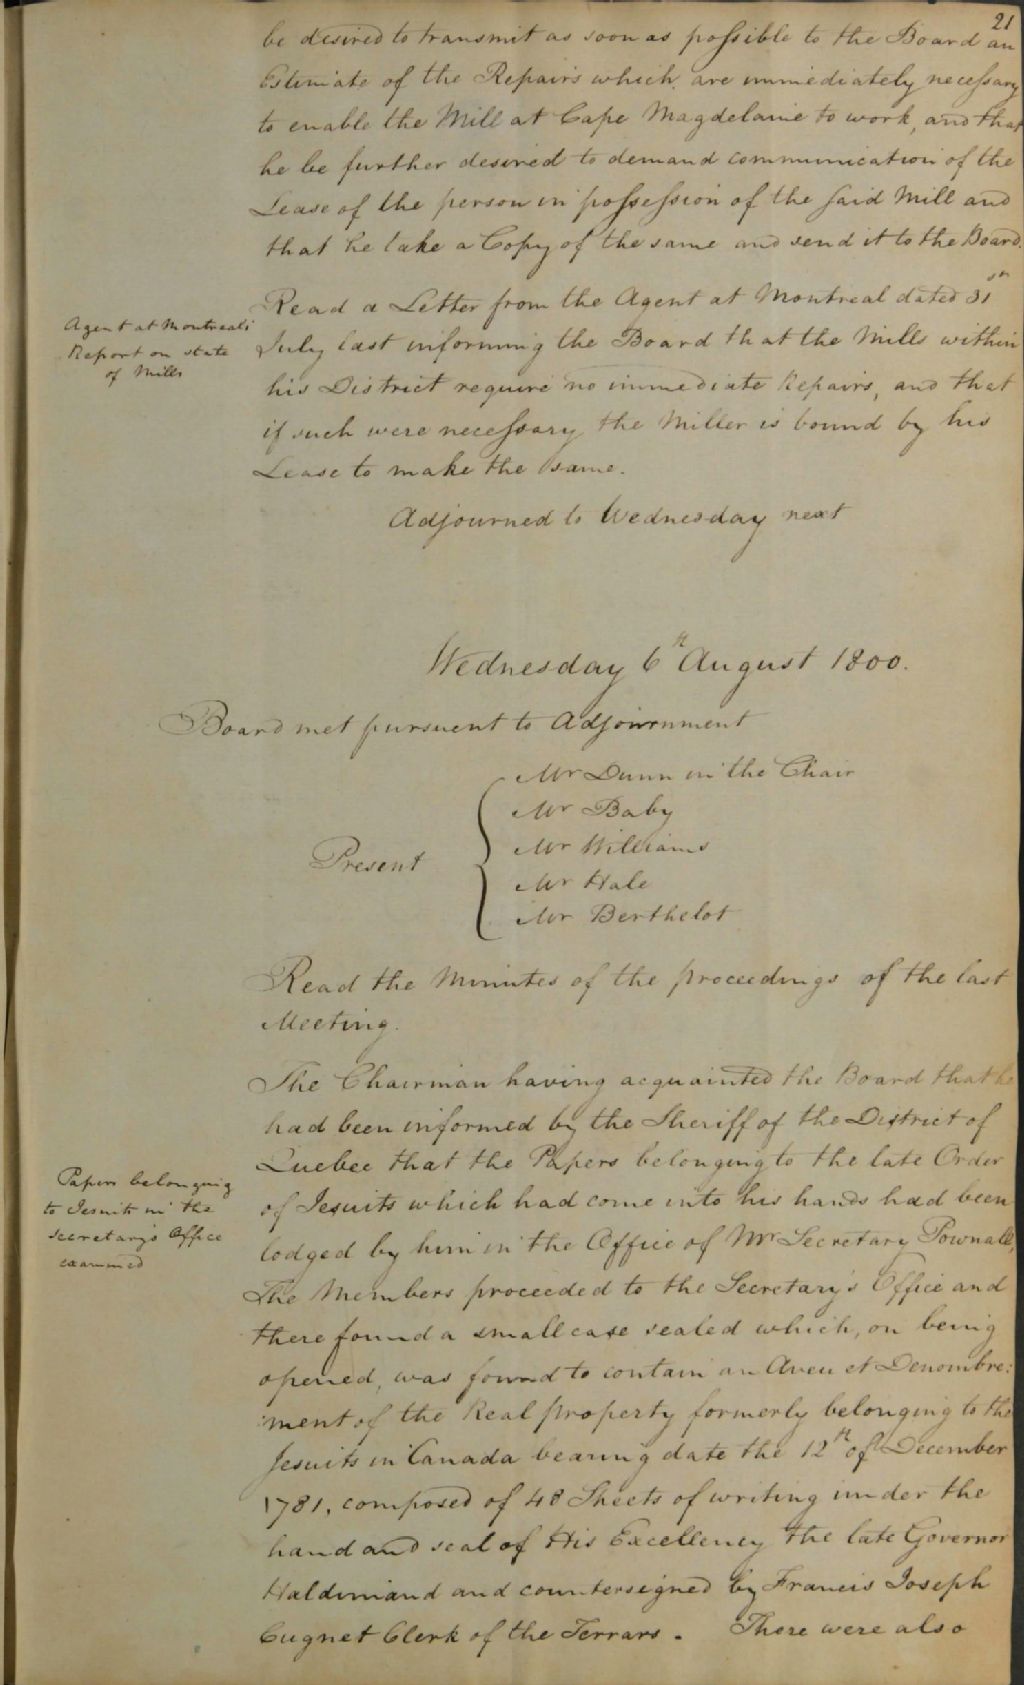 21
be desired to transmit as soon as possible to the Board an
Estimate of the Repairs which are immediately necessary
to enable the Mill at Cape Magdelaine to work, and that
he be further desired to demand communication of the
Lease of the person in possession of the said Mill and
that he take a Copy of the same and send it to the Board.
Agent at Montreal's
Report on state
of Mills
Read a Letter from the Agent at Montreal dated 31st
July last informing the Board that the Mills within
his District require no immediate Repairs, and that
if such were necessary the Miller is bound by his
Lease to make the same.
Adjourned to Wednesday next
Wednesday 6th August 1800.
Board met pursuent to Adjournment
Present
Mr Dunn in the Chair
Mr Baby
Mr Williams
Mr Hale
Mr Berthelot
Read the Minutes of the proceedings of the last
Meeting.
The Chairman having acquainted the Board that he
had been informed by the Sheriff of the District of
Quebec that the Papers belonging to the late Order
of Jesuits which had come into his hands had been
lodged by him in the Office of Mr Secretary Pownall,
Papers belonging
to Jesuits in the
Secretary's Office
examined
The Members proceeded to the Secretary's Office and
there found a small case sealed which, on being
opened, was found to contain an Aveu et Denombre:
ment of the Real property formerly belonging to the
Jesuits in Canada bearing date the 12th of December
1781, composed of 48 Sheets of writing under the
hand and seal of His Excellency the late Governor
Haldimand and countersigned by Francis Joseph
Cugnet Clerk of the Terrars. There were also